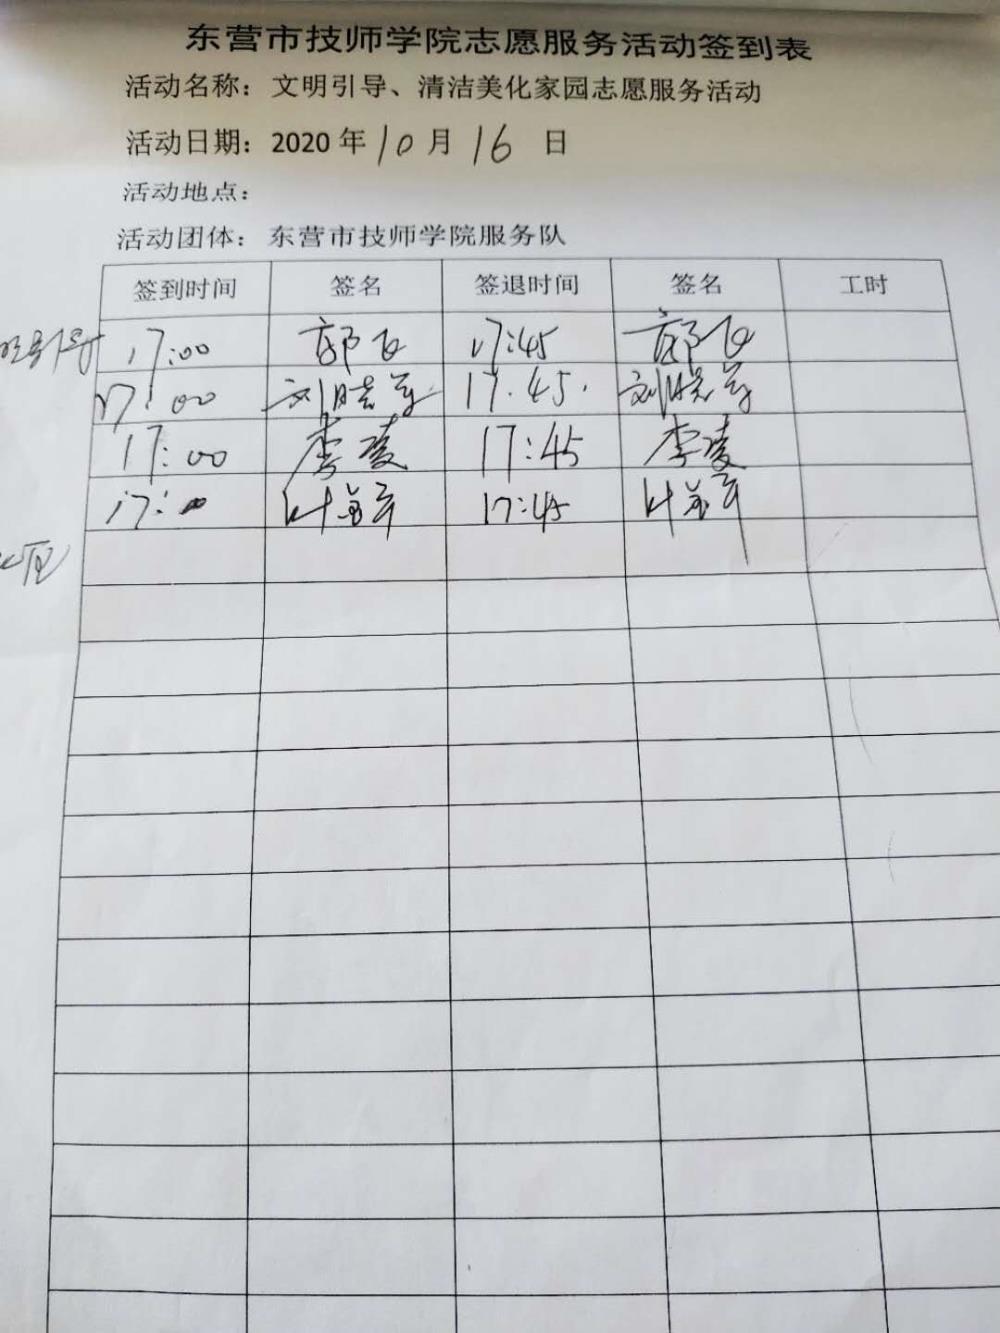 东营市技师学院志愿服务活动签到表
活动名称：文明引导、清洁美化家园志愿服务活动
活动日期：2020 年 10 月 16 日
活动地点：
活动团体：东营市技师学院服务队
签到时间 签名 签退时间 签名 工时
17:00 17:45
17:00 17.45.
17:00 李凌 17:45 李凌
17: 17:45